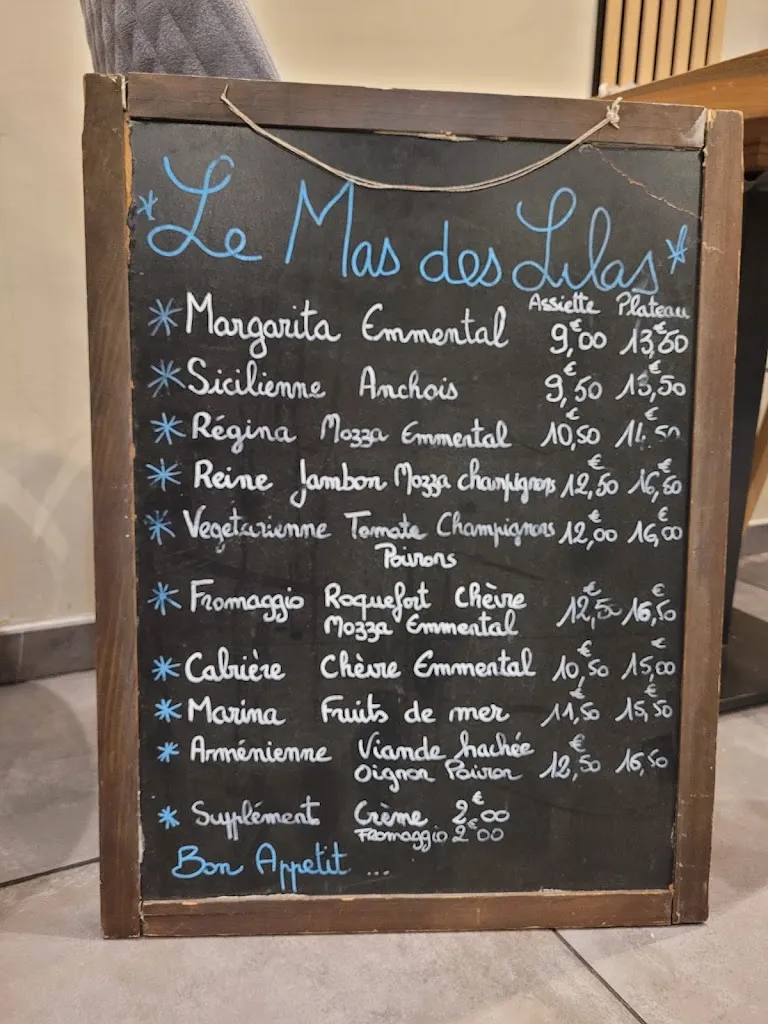 Le Mas des Lilas
Assiette Plateau
Margarita Emmental 9,00€ 13,50€
Sicilienne Anchois 9,50€ 13,50€
Régina Mozza Emmental 10,50€ 14,50€
Reine Jambon Mozza champignons 12,50€ 16,50€
Vegetarienne Tomate Champignons 12,00€ 16,00€
Poivrons
Fromaggio Roquefort Chèvre 12,50€ 16,50€
Mozza Emmental
Cabrière Chèvre Emmental 10,50€ 15,00€
Marina Fruits de mer 11,50€ 15,50€
Arménienne Viande hachée 12,50€ 16,50
Oignon Poivron
Supplément Crème 2€00
Fromaggio 2€00
Bon Appetit ...